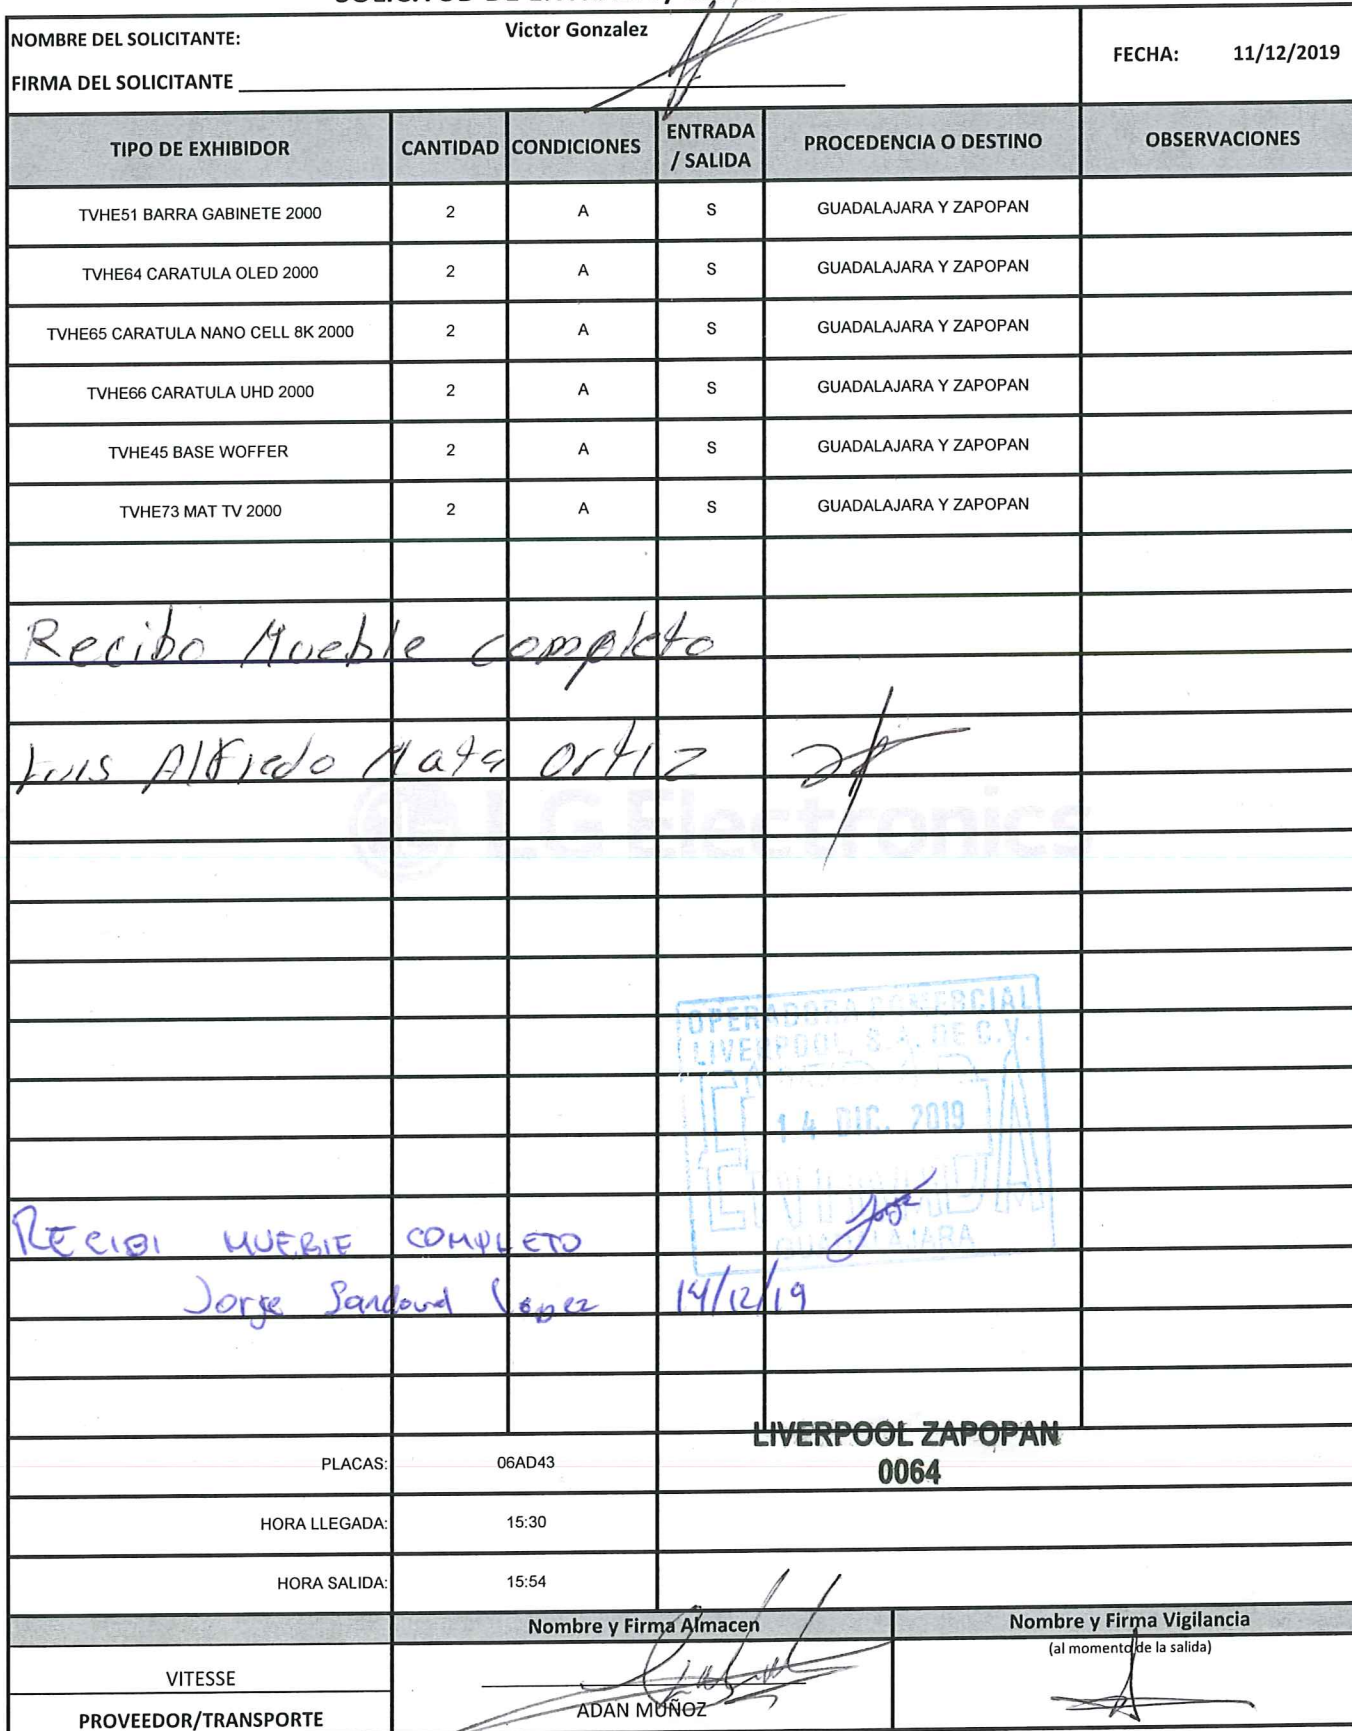 NOMBRE DEL SOLICITANTE: Victor Gonzalez
FIRMA DEL SOLICITANTE
FECHA: 11/12/2019
TIPO DE EXHIBIDOR CANTIDAD CONDICIONES ENTRADA / SALIDA PROCEDENCIA O DESTINO OBSERVACIONES
TVHE51 BARRA GABINETE 2000 2 A S GUADALAJARA Y ZAPOPAN
TVHE64 CARATULA OLED 2000 2 A S GUADALAJARA Y ZAPOPAN
TVHE65 CARATULA NANO CELL 8K 2000 2 A S GUADALAJARA Y ZAPOPAN
TVHE66 CARATULA UHD 2000 2 A S GUADALAJARA Y ZAPOPAN
TVHE45 BASE WOFFER 2 A S GUADALAJARA Y ZAPOPAN
TVHE73 MAT TV 2000 2 A S GUADALAJARA Y ZAPOPAN
Recibo Mueble completo
Luis Alfredo Mata Ortiz
LG Electronics
OPERADORA COMERCIAL
LIVERPOOL, S.A. DE C.V.
14 DIC. 2019
GUADALAJARA
RECIBI MUEBLE COMPLETO
Jorge Sandoval Lopez 14/12/19
LIVERPOOL ZAPOPAN
0064
PLACAS: 06AD43
HORA LLEGADA: 15:30
HORA SALIDA: 15:54
Nombre y Firma Almacen
Nombre y Firma Vigilancia
(al momento de la salida)
VITESSE
ADAN MUÑOZ
PROVEEDOR/TRANSPORTE